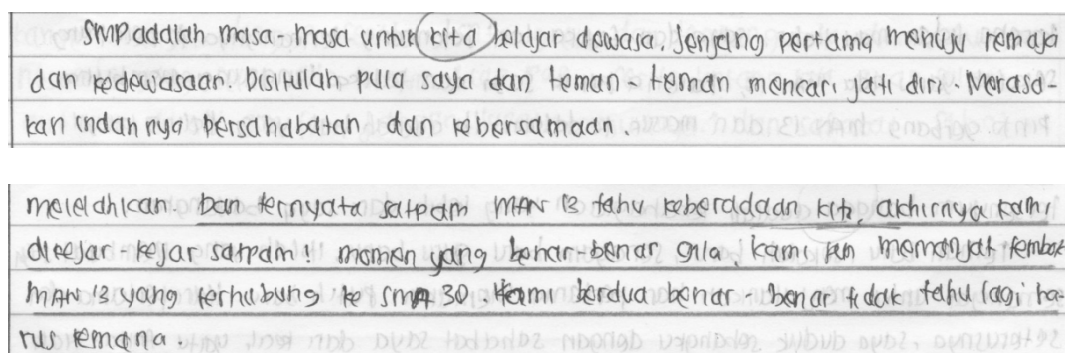 SMP adalah masa-masa untuk kita belajar dewasa. Jenjang pertama menuju remaja
dan kedewasaan. Disitulah pula saya dan teman-teman mencari jati diri. Merasa-
kan indahnya persahabatan dan kebersamaan.
melelahkan. Dan ternyata satpam MAN 13 tahu keberadaan kita, achirnya kami
dikejar-kejar satpam. momen yang benar-benar gila, kami pun memanjat tembok
MAN 13 yang terhubung ke SMA 30. Kami berdua benar-benar tidak tahu lagi ha-
rus kemana.